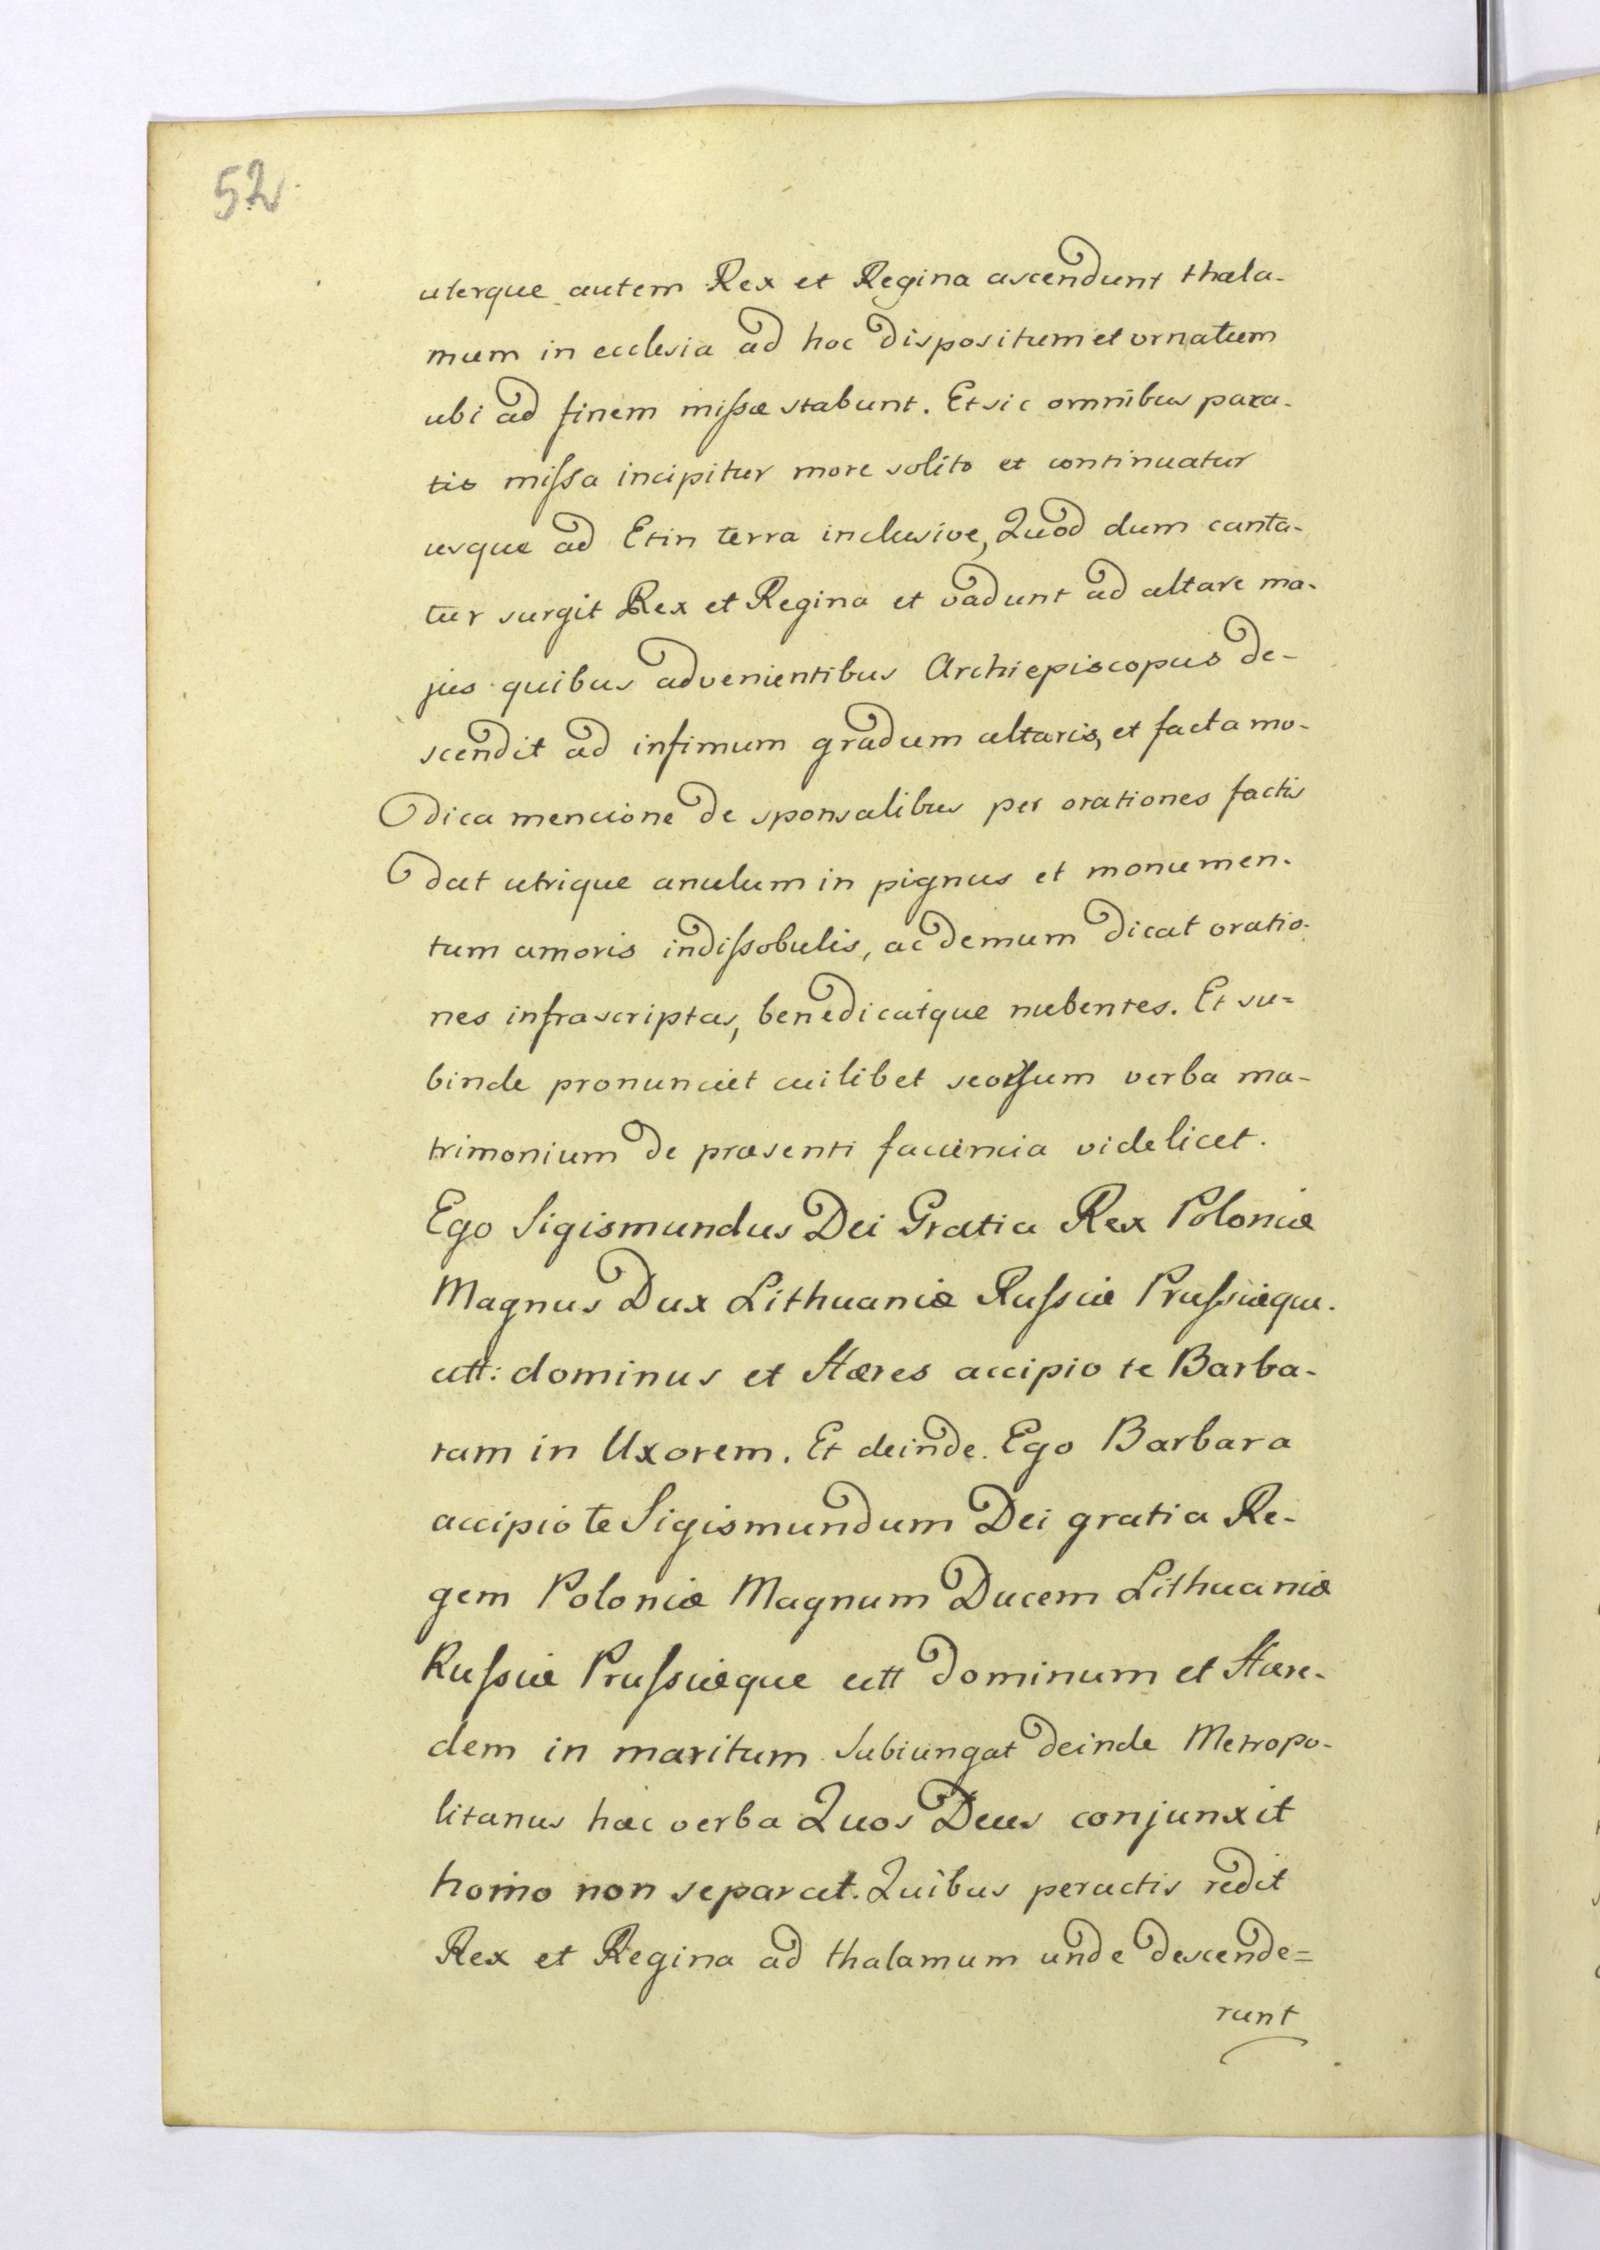 52
uterque autem Rex et Regina ascendunt thala-
mum in ecclesia ad hoc dispositum et ornatum
ubi ad finem missæ stabunt. Et sic omnibus para-
tis missa incipitur more solito et continuatur
usque ad Et in terra inclusive, Quod dum canta-
tur surgit Rex et Regina et vadunt ad altare ma-
jus quibus advenientibus Archiepiscopus de-
scendit ad infimum gradum altaris, et facta mo-
dica mencione de sponsalibus per orationes factis
dat utrique anulum in pignus et monumen-
tum amoris indissobulis, ac demum dicat oratio-
nes infrascriptas, benedicatque nubentes. Et su=
binde pronunciet cuilibet seorsum verba ma-
trimonium de præsenti faciencia videlicet.
Ego Sigismundus Dei Gratia Rex Poloniæ
Magnus Dux Lithuaniæ Russiæ Prussiæque.
ett: dominus et Hæres accipio te Barba-
ram in Uxorem. Et deinde. Ego Barbara
accipio te Sigismundum Dei gratia Re-
gem Poloniæ Magnum Ducem Lithuaniæ
Russiæ Prussiæque ett dominum et Hære-
dem in maritum. Subiungat deinde Metropo-
litanus hæc verba Quos Deus conjunxit
homo non separet. Quibus peractis redit
Rex et Regina ad thalamum unde descende=
runt